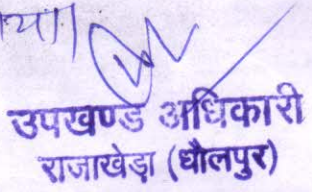 या।
उपखण्ड अधिकारी
राजाखेड़ा (धौलपुर)